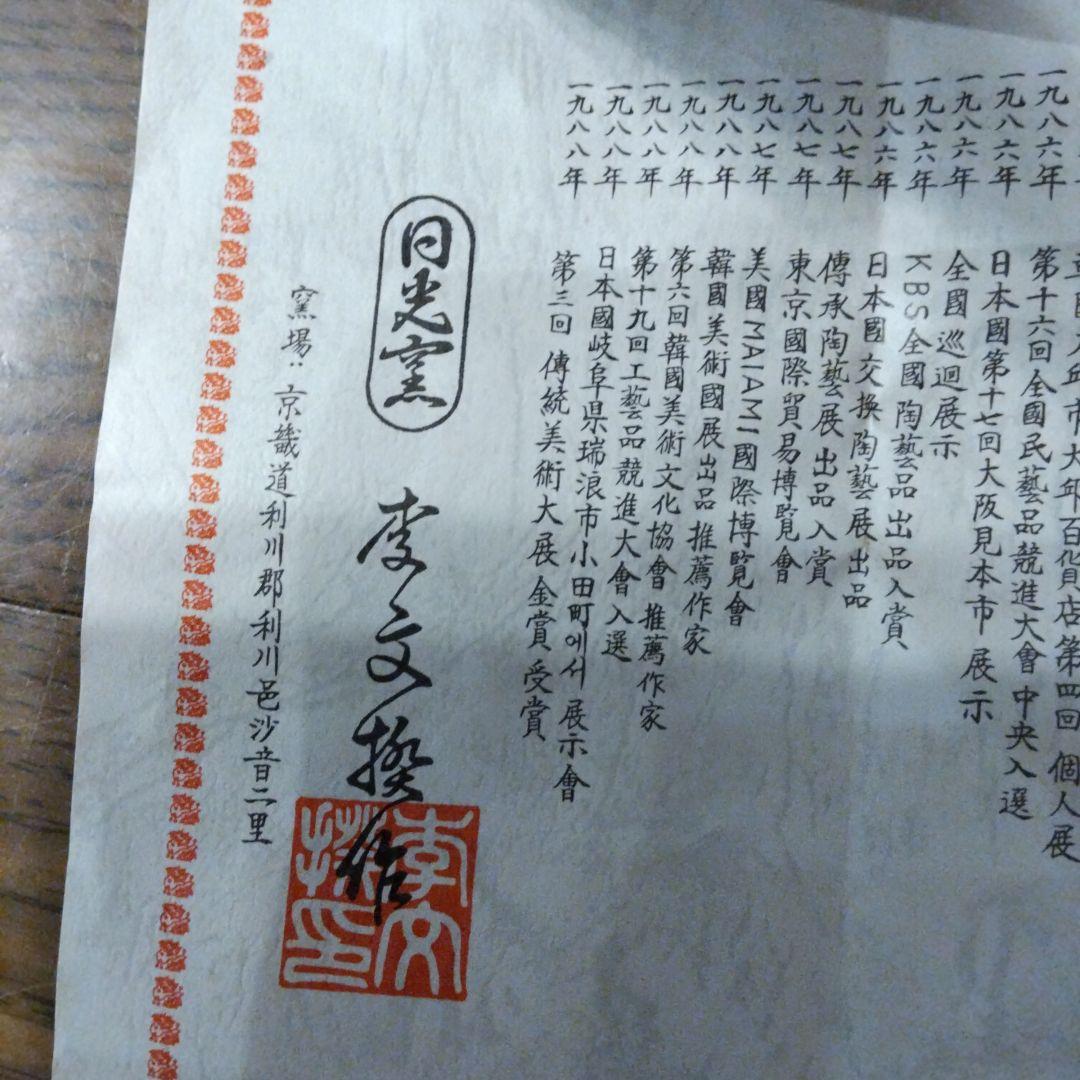 大邱市大邱百貨店第四回 個人展
一九八六年 第十六回全國民藝品競進大會 中央入選
一九八六年 日本國第十七回大阪見本市 展示
一九八六年 全國巡迴展示
一九八六年 KBS全國陶藝品出品入賞
一九八六年 日本國交換陶藝展出品
一九八七年 傳承陶藝展出品入賞
一九八七年 東京國際貿易博覧會
一九八七年 美國MAIAMI國際博覧會
一九八八年 韓國美術國展出品推薦作家
一九八八年 第六回韓國美術文化協會 推薦作家
一九八八年 第十九回工藝品競進大會入選
一九八八年 日本國岐阜県瑞浪市小田町에서展示會
一九八八年 第三回 傳統美術大展 金賞受賞
日光窯 李文撥作
李文撥印
窯場:京畿道利川郡利川邑沙音二里